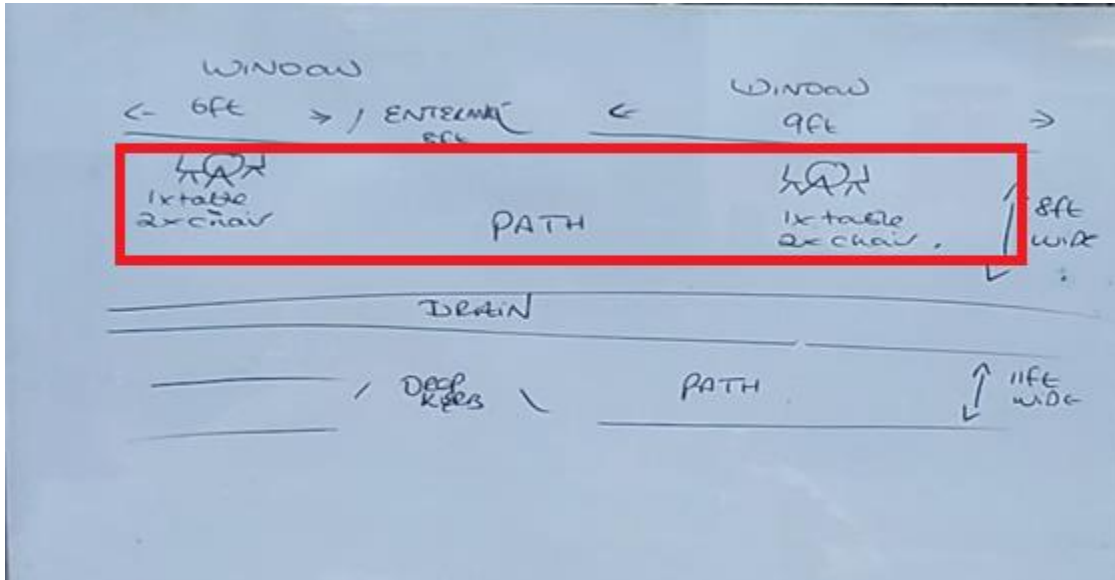 WINDOW
<- 6ft -> / ENTERANCE
8ft
WINDOW
<- 9ft ->
1x table
2x chair
PATH
1x table
2x chair.
8ft
WIDE
DRAIN
/ DROP
KERB \
PATH
11ft
WIDE